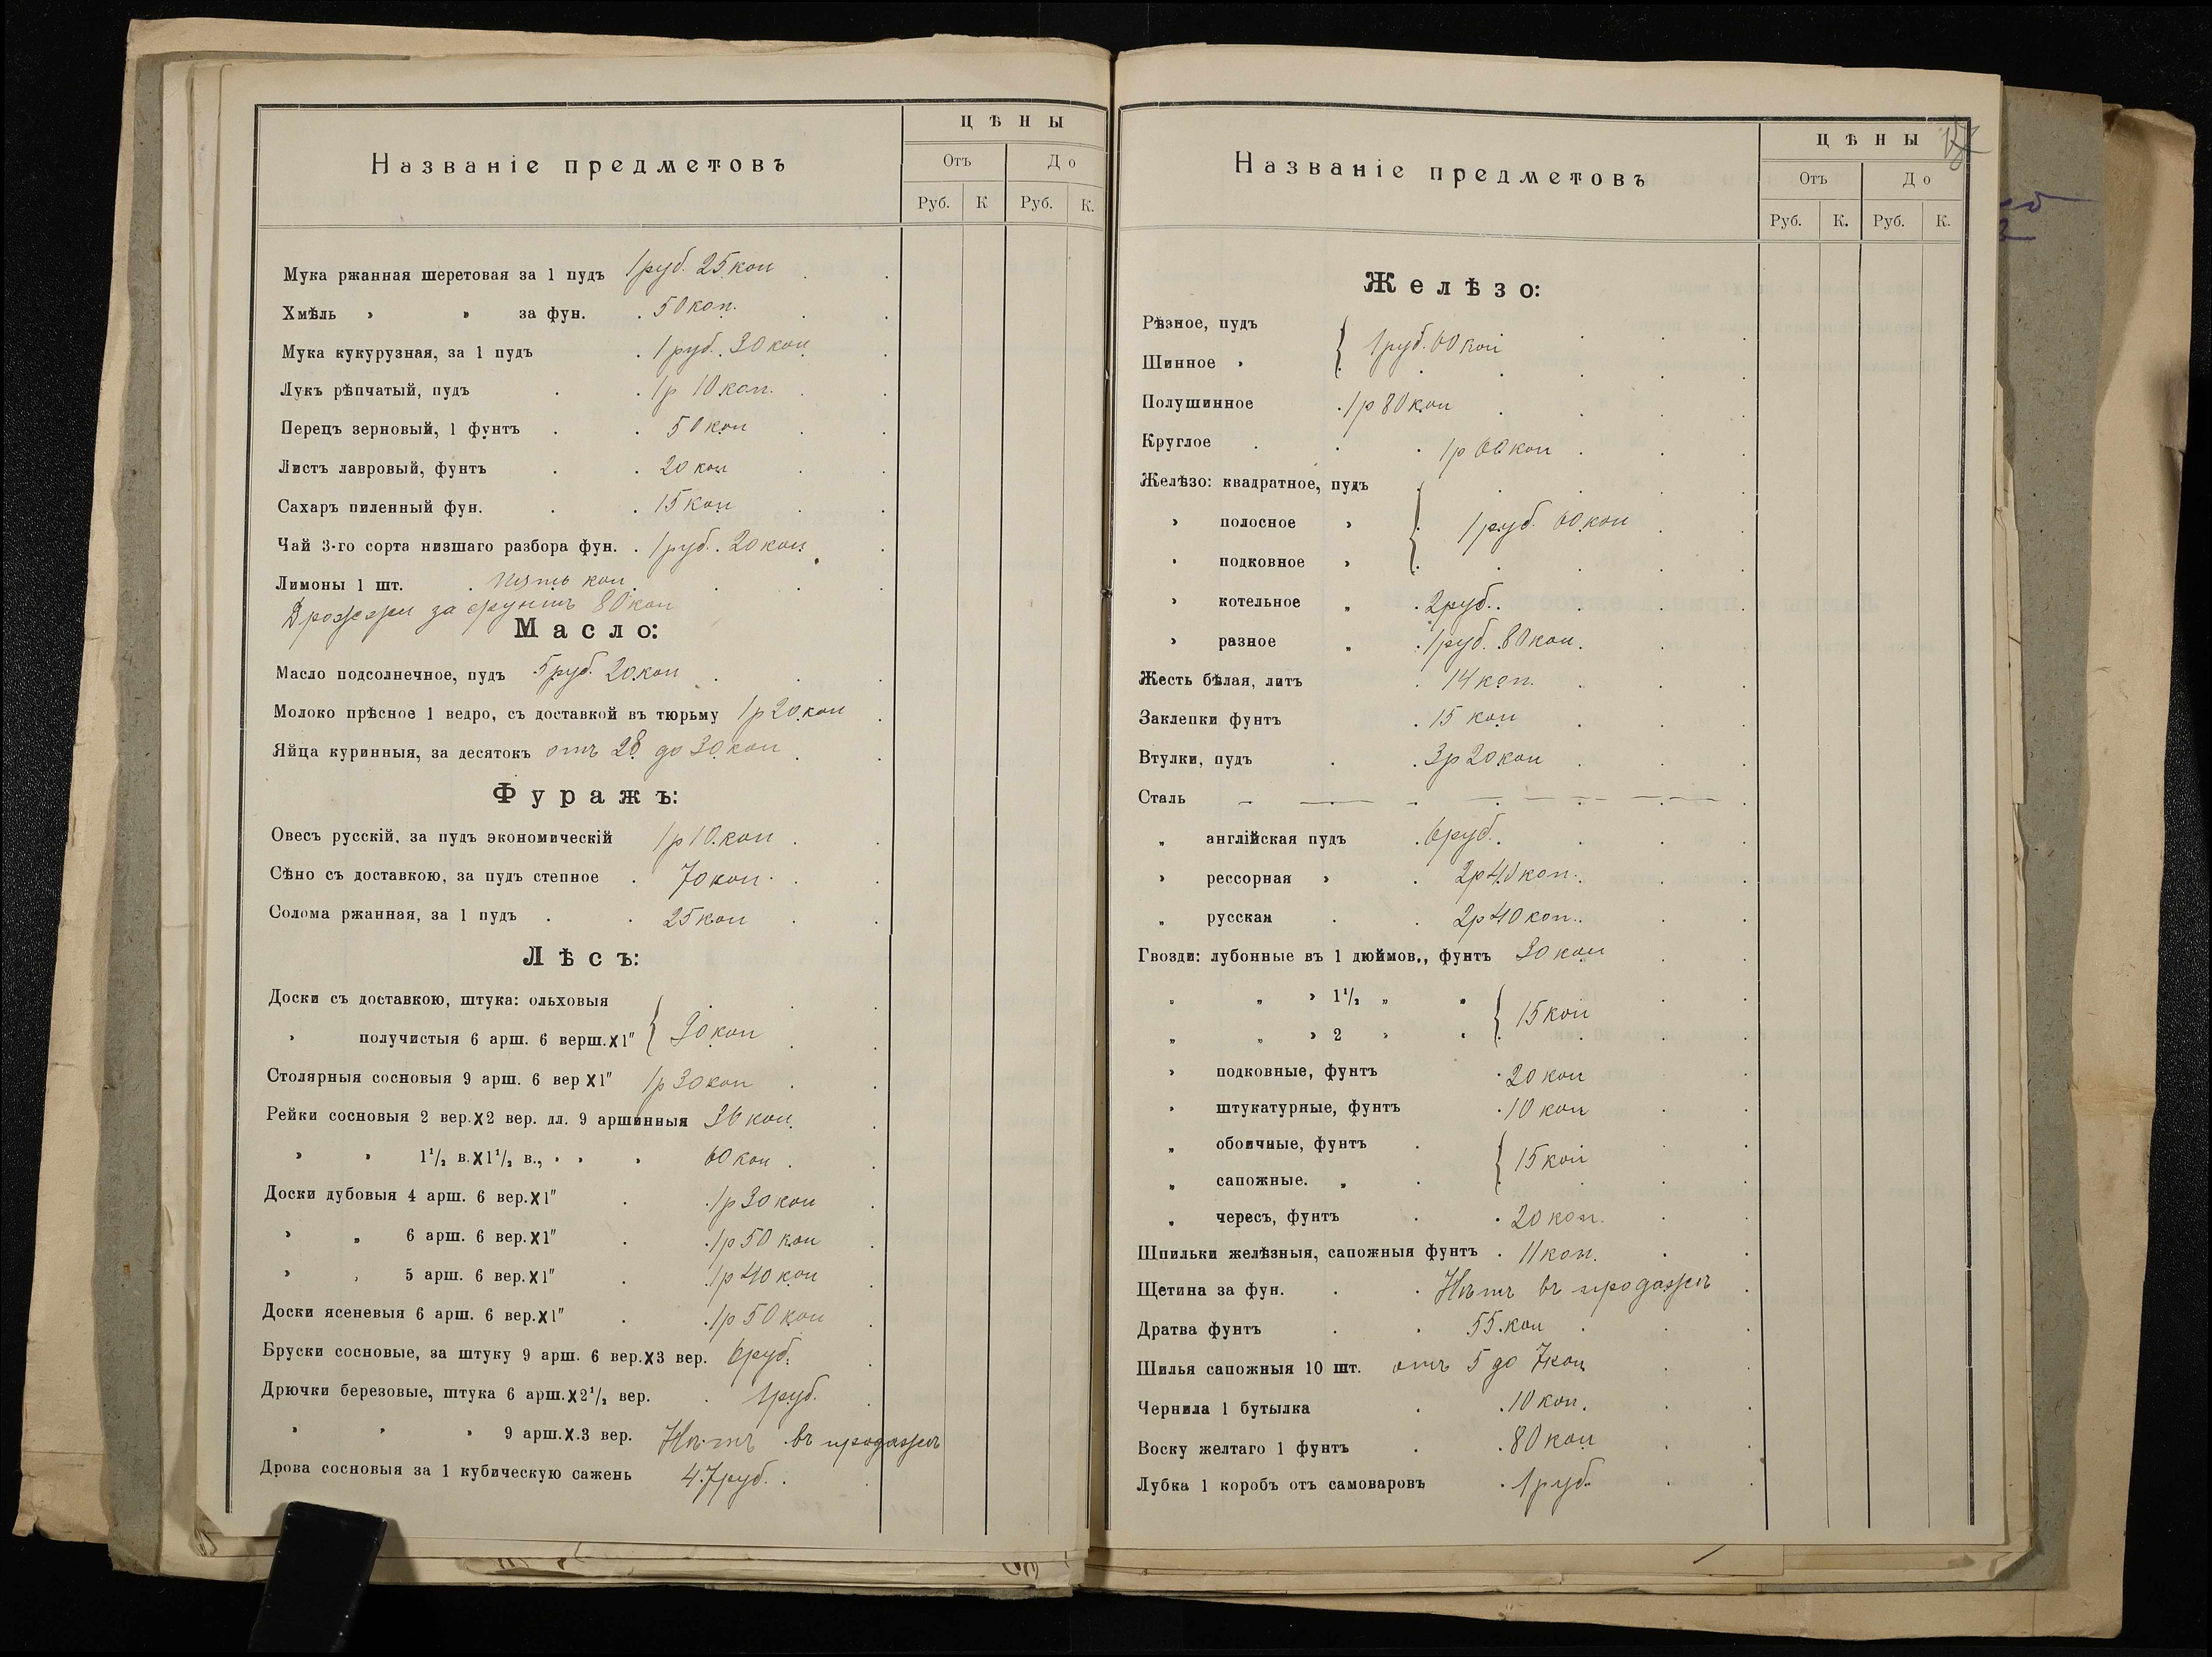 Названіе предметовъ
ЦѢНЫ
Отъ До
Руб. К Руб. К.
Мука ржанная шеретовая за 1 пудъ 1 руб. 25 коп
Хмѣль » » за фун. 50 коп.
Мука кукурузная, за 1 пудъ 1 руб. 30 коп
Лукъ рѣпчатый, пудъ 1 р 10 коп.
Перецъ зерновый, 1 фунтъ 50 коп
Листъ лавровый, фунтъ 20 коп
Сахаръ пиленный фун. 15 коп
Чай 3-го сорта низшаго разбора фун. 1 руб. 20 коп
Лимоны 1 шт. пять коп
Дрожжи за фунтъ 80 коп
Масло:
Масло подсолнечное, пудъ 5 руб. 20 коп
Молоко прѣсное 1 ведро, съ доставкой въ тюрьму 1 р 20 коп
Яйца куринныя, за десятокъ отъ 28 до 30 коп
Фуражъ:
Овесъ русскій, за пудъ экономическій 1 р 10 коп
Сѣно съ доставкою, за пудъ степное 70 коп
Солома ржанная, за 1 пудъ 25 коп
Лѣсъ:
Доски съ доставкою, штука: ольховыя
» получистыя 6 арш. 6 верш.X1" } 90 коп
Столярныя сосновыя 9 арш. 6 вер X1" 1 р 30 коп
Рейки сосновыя 2 вер.X2 вер. дл. 9 аршинныя 36 коп.
» » 1½ в.X1½ в., » » » 60 коп
Доски дубовыя 4 арш. 6 вер.X1" 1 р 30 коп
» „ 6 арш. 6 вер.X1" 1 р 50 коп
» „ 5 арш. 6 вер.X1" 1 р 40 коп
Доски ясеневыя 6 арш. 6 вер.X1" 1 р 50 коп
Бруски сосновые, за штуку 9 арш. 6 вер.X3 вер. 6 руб.
Дрючки березовые, штука 6 арш.X2½ вер. 1 руб.
» » » 9 арш.X.3 вер. Нѣтъ въ продажѣ
Дрова сосновыя за 1 кубическую сажень 47 руб.
Названіе предметовъ
ЦѢНЫ
Отъ До
Руб. К. Руб. К.
Желѣзо:
Рѣзное, пудъ
Шинное » { 1 руб. 60 коп
Полушинное 1 р 80 коп
Круглое 1 р 60 коп
Желѣзо: квадратное, пудъ
» полосное » { 1 руб. 60 коп
» подковное »
» котельное „ 2 руб.
» разное „ 1 руб. 80 коп.
Жесть бѣлая, литъ 14 коп.
Заклепки фунтъ 15 коп
Втулки, пудъ 3 р 20 коп
Сталь — — — —
„ англійская пудъ 6 руб.
» рессорная » 2 р 40 коп.
„ русская 2 р 40 коп.
Гвозди: лубонные въ 1 дюймов., фунтъ 30 коп
„ „ » 1½ „ „
„ „ » 2 » » { 15 коп
» подковные, фунтъ 20 коп
» штукатурные, фунтъ 10 коп
„ обоичные, фунтъ
„ сапожные. „ { 15 коп
„ чересъ, фунтъ 20 коп.
Шпильки желѣзныя, сапожныя фунтъ 11 коп.
Щетина за фун. Нѣтъ въ продажѣ
Дратва фунтъ 55 коп
Шилья сапожныя 10 шт. отъ 5 до 7 коп
Чернила 1 бутылка 10 коп.
Воску желтаго 1 фунтъ 80 коп
Лубка 1 коробъ отъ самоваровъ 1 руб.